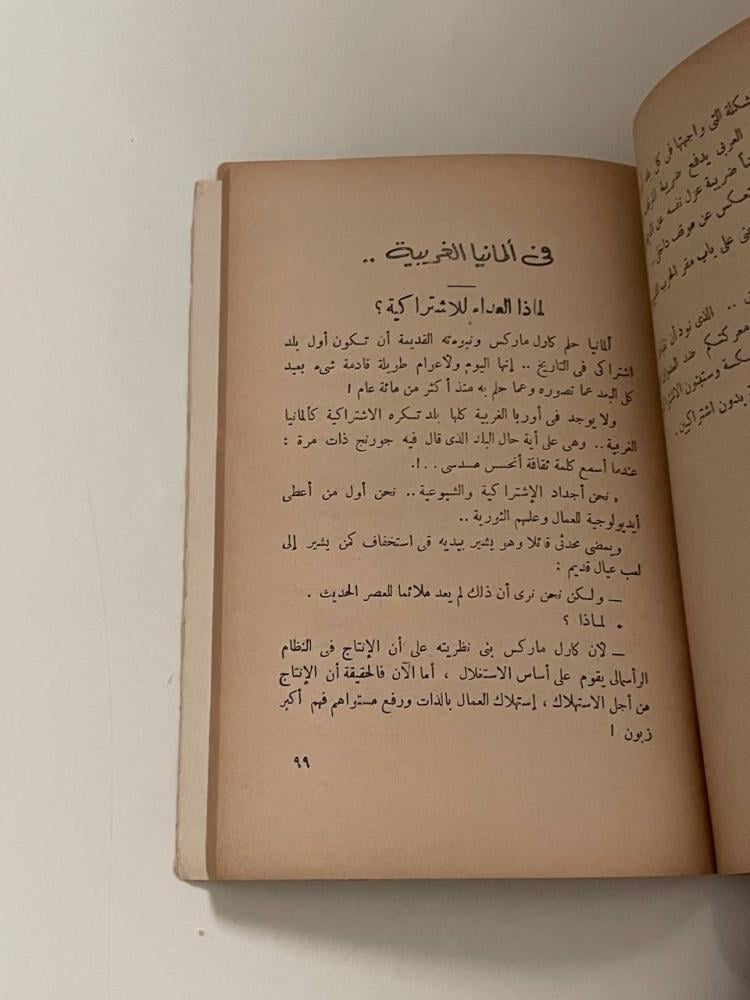 شكلة التى واجهتها فى كل بلد
العربى يدفع ضريبة
ضريبة عزل نفسه عن
تعكس عن موقف داخلى
على باب مقر الحزب
.. الذى نود أن
معركتكم ضد
وستبنون
بدون اشتراكين .
فى ألمانيا الغربية ..
لماذا العداء للاشتراكية ؟
ألمانيا حلم كارل ماركس ونبوءته القديمة أن تكون أول بلد
اشتراكى فى التاريخ .. إنها اليوم ولأعوام طويلة قادمة شىء بعيد
كل البعد عما تصوره وعما حلم به منذ أكثر من مائة عام !
ولا يوجد فى أوربا الغربية كلها بلد تكره الاشتراكية كألمانيا
الغربية .. وهى على أية حال البلد الذى قال فيه جورنج ذات مرة :
عندما أسمع كلمة ثقافة أتحسس مسدسى . . !.
« نحن أجداد الإشتراكية والشيوعية .. نحن أول من أعطى
أيديولوجية للعمال وعلمهم الثورية ..
ويمضى محدثى قائلا وهو يشير بيديه فى استخفاف كمن يشير إلى
لعب عيال قديم :
— ولكن نحن نرى أن ذلك لم يعد ملائما للعصر الحديث .
• لماذا ؟
— لأن كارل ماركس بنى نظريته على أن الإنتاج فى النظام
الرأسمالى يقوم على أساس الاستغلال ، أما الآن فالحقيقة أن الإنتاج
من أجل الاستهلاك ، إستهلاك العمال بالذات ورفع مستواهم فهم أكبر
زبون !
٩٩